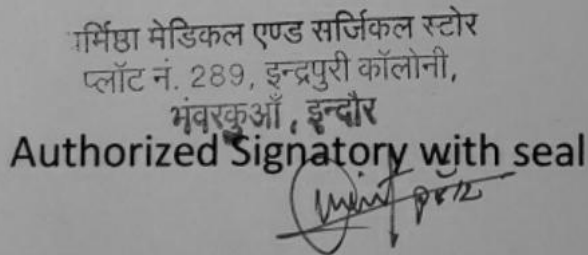 र्मिष्ठा मेडिकल एण्ड सर्जिकल स्टोर
प्लॉट नं. 289, इन्द्रपुरी कॉलोनी,
भंवरकुआँ, इन्दौर
Authorized Signatory with seal